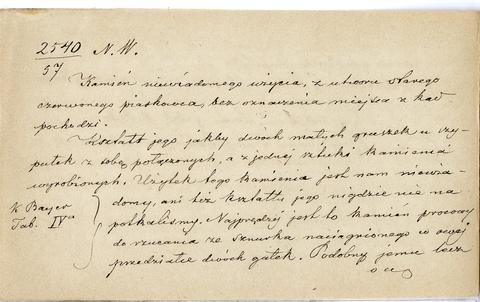 2540 N. W.
57
Kamień niewiadomego użycia, z utworu starego
czerwonego piaskowca, bez oznaczenia miejsca z kąd
pochodzi.
Kształt jego jakby dwoch małych gruszek u szy-
pułek z sobą połączonych, a z jednéj sztuki kamienia
wyrobionych. Użytek tego kamienia jest nam niewia-
domy, ani téż kształtu jego nigdzie nie na
potkaliśmy. Najprędzéj jest to kamień procowy
do rzucania ze sznurka naciągnionego w owéj
przedziałce dwoch gałek. Podobny jemu lecz
K Bayer
Tab. IVa